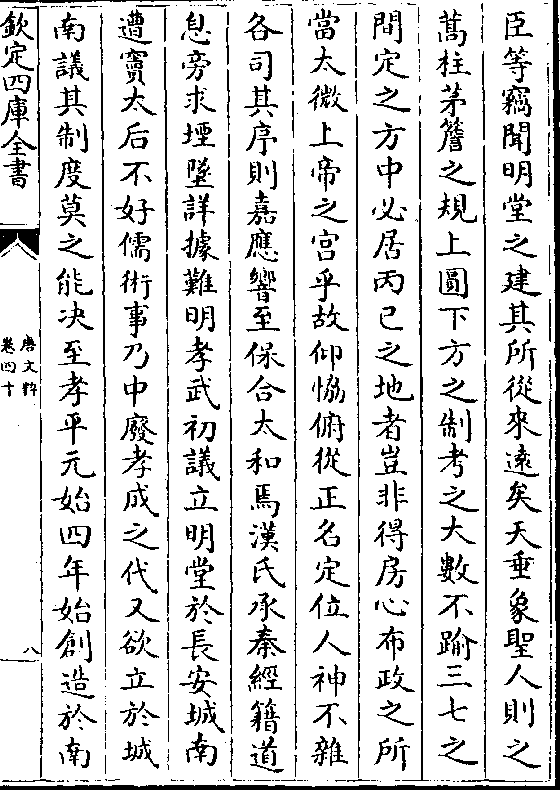 臣等竊聞明堂之建其所從來逺矣天垂象聖人則之
蒿柱茅簷之規上圓下方之制考之大數不踰三七之
間定之方中必居丙巳之地者豈非得房心布政之所
當太微上帝之宫乎故仰恊俯從正名定位人神不雜
各司其序則嘉應響至保合太和焉漢氏承秦經籍道
息旁求堙墜詳據難明孝武初議立明堂於長安城南
遭竇太后不好儒術事乃中廢孝成之代又欲立於城
南議其制度莫之能决至孝平元始四年始創造於南
欽定四庫全書
唐文粹
卷四十
八